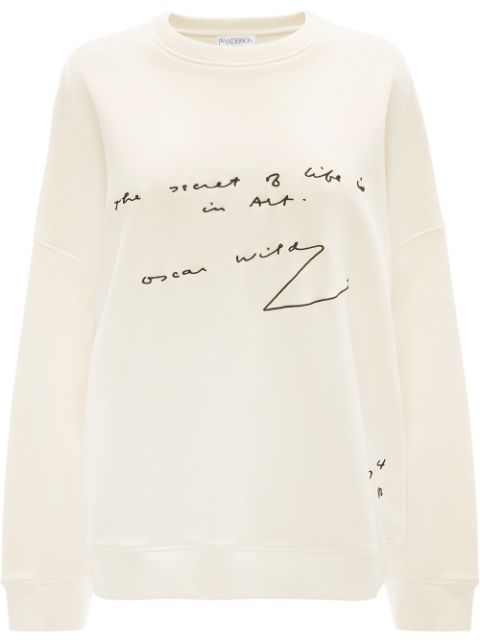 JW ANDERSON
the secret of life is
in Art.
oscar wilde
4